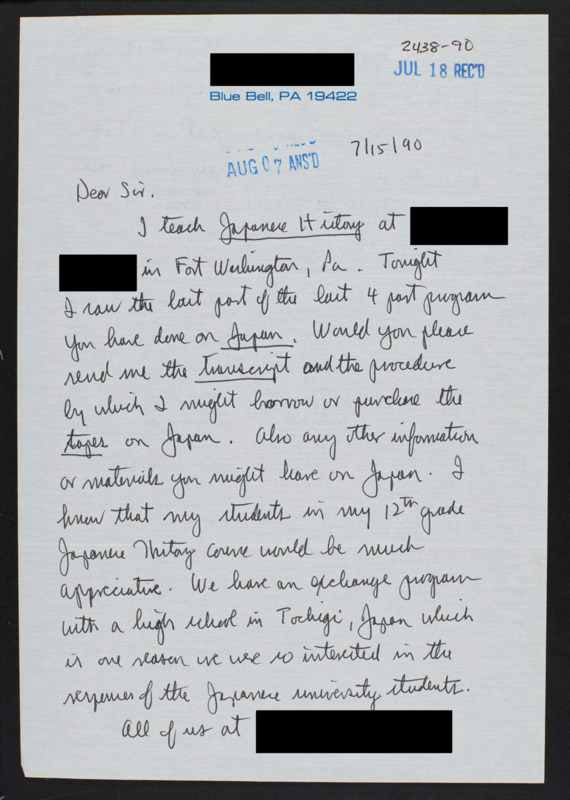 2438-90
JUL 18 REC'D
Blue Bell, PA 19422
AUG 07 ANS'D
7/15/90
Dear Sir.
I teach Japanese History at
in Fort Washington, Pa. Tonight
I saw the last part of the last 4 part program
you have done on Japan. Would you please
send me the transcript and the procedure
by which I might borrow or purchase the
tapes on Japan. Also any other information
or materials you might have on Japan. I
know that my students in my 12th grade
Japanese History course would be much
appreciative. We have an exchange program
with a high school in Tochigi, Japan which
is one reason we are so interested in the
responses of the Japanese university students.
All of us at